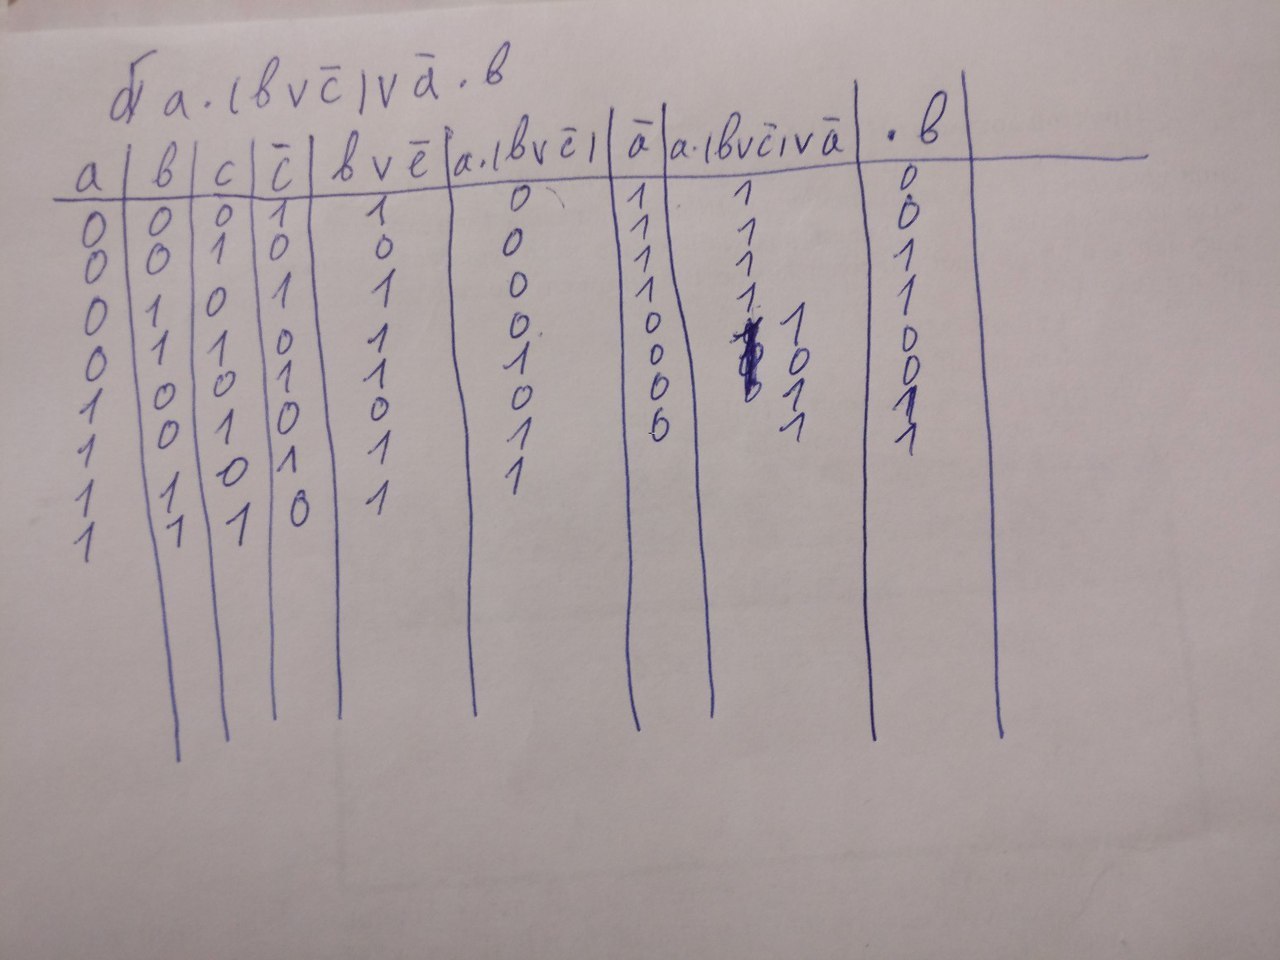 б) a · (b ∨ c̄) ∨ ā · b
a b c c̄ b ∨ c̄ a·(b∨c̄) ā a·(b∨c̄)∨ā · b
0 0 0 1 1 0 1 1 0
0 0 1 0 0 0 1 1 0
0 1 0 1 1 0 1 1 1
0 1 1 0 1 0 1 1 1
1 0 0 1 1 1 0 1 0
1 0 1 0 0 0 0 0 0
1 1 0 1 1 1 0 1 1
1 1 1 0 1 1 0 1 1